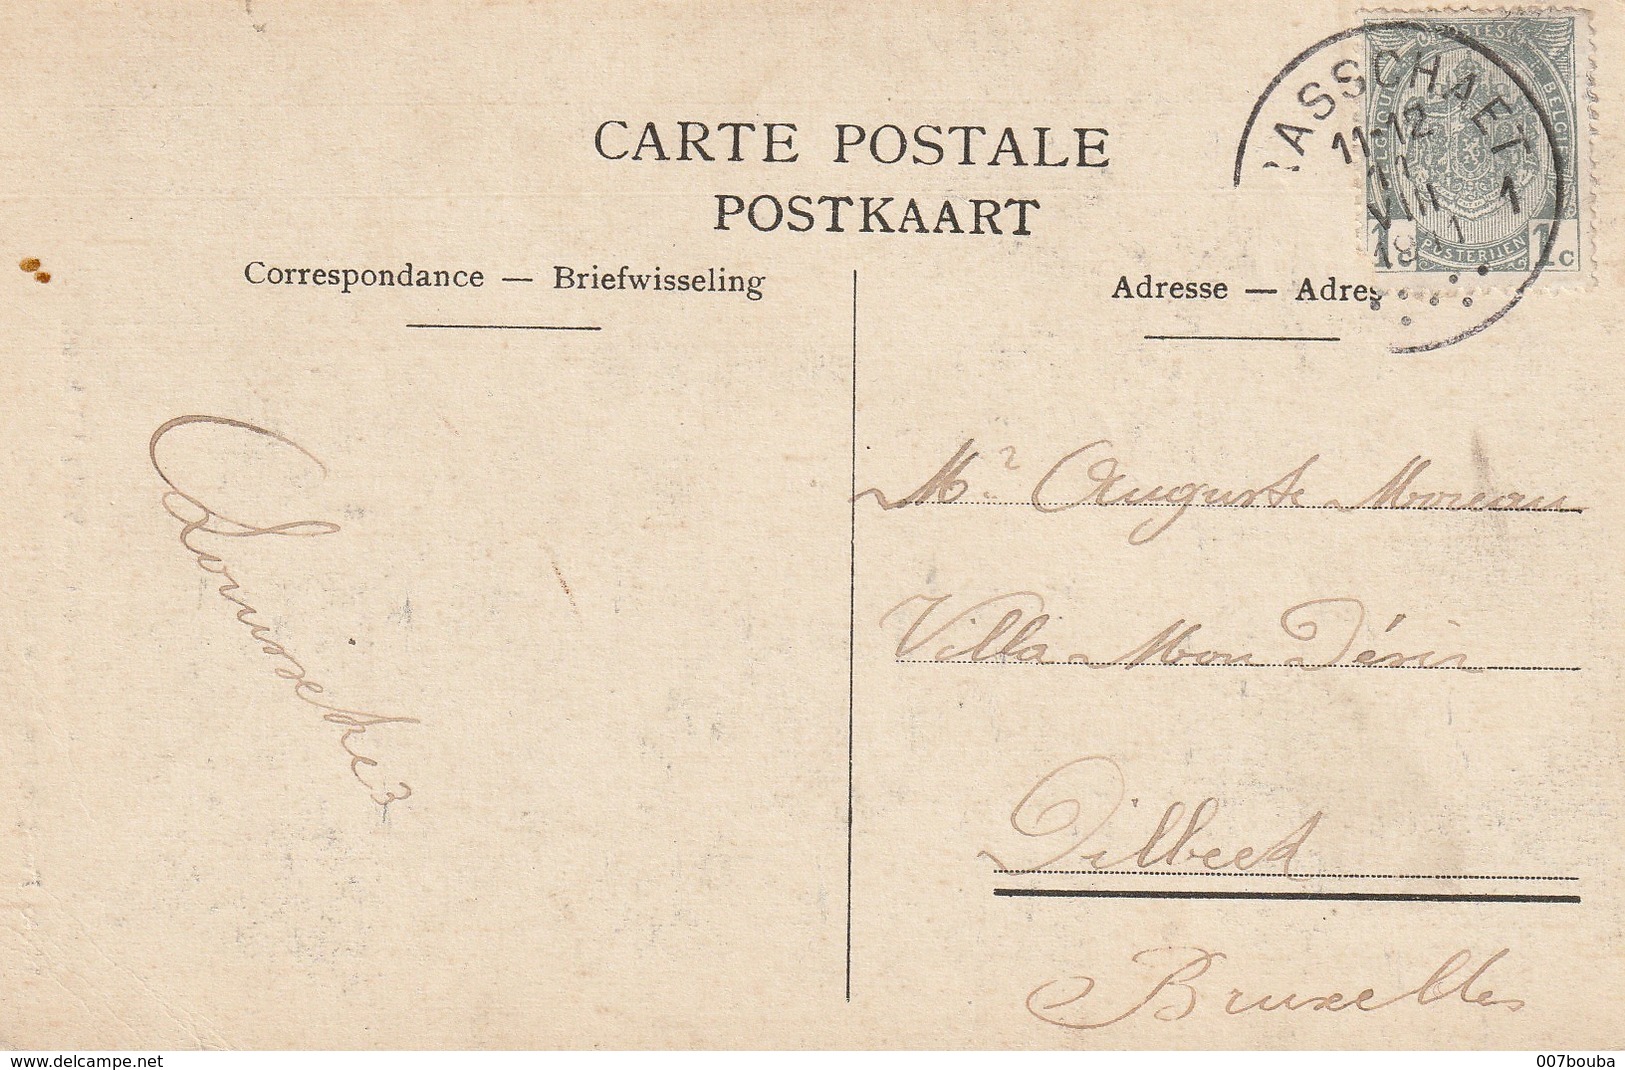 CARTE POSTALE
POSTKAART
Correspondance — Briefwisseling
Adresse — Adres
ASSCHAET 1
11-12
11
VIII
BELGIQUE POSTES BELGIË
POSTERIJEN
1 1c
Mr. Auguste Moreau
Villa Mon Désir
Dilbeek
Bruxelles
Louiseke
www.delcampe.net
007bouba